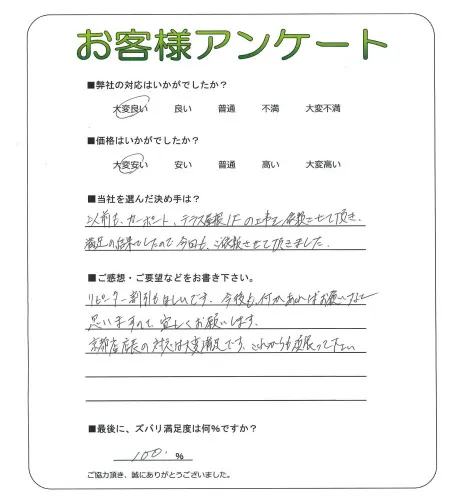 お客様アンケート
■弊社の対応はいかがでしたか？
大変良い 良い 普通 不満 大変不満
■価格はいかがでしたか？
大変安い 安い 普通 高い 大変高い
■当社を選んだ決め手は？
以前も、カーポート、テラス屋根1Fの工事を依頼させて頂き、
満足の結果でしたので今回も、ご依頼させて頂きました。
■ご感想・ご要望などをお書き下さい。
リピーター割引もほしいです。今後も、何かあればお願いしたいと
思いますので、宜しくお願いします。
京都店店長の対応は大変満足です。これからも頑張って下さい
■最後に、ズバリ満足度は何％ですか？
100. ％
ご協力頂き、誠にありがとうございました。